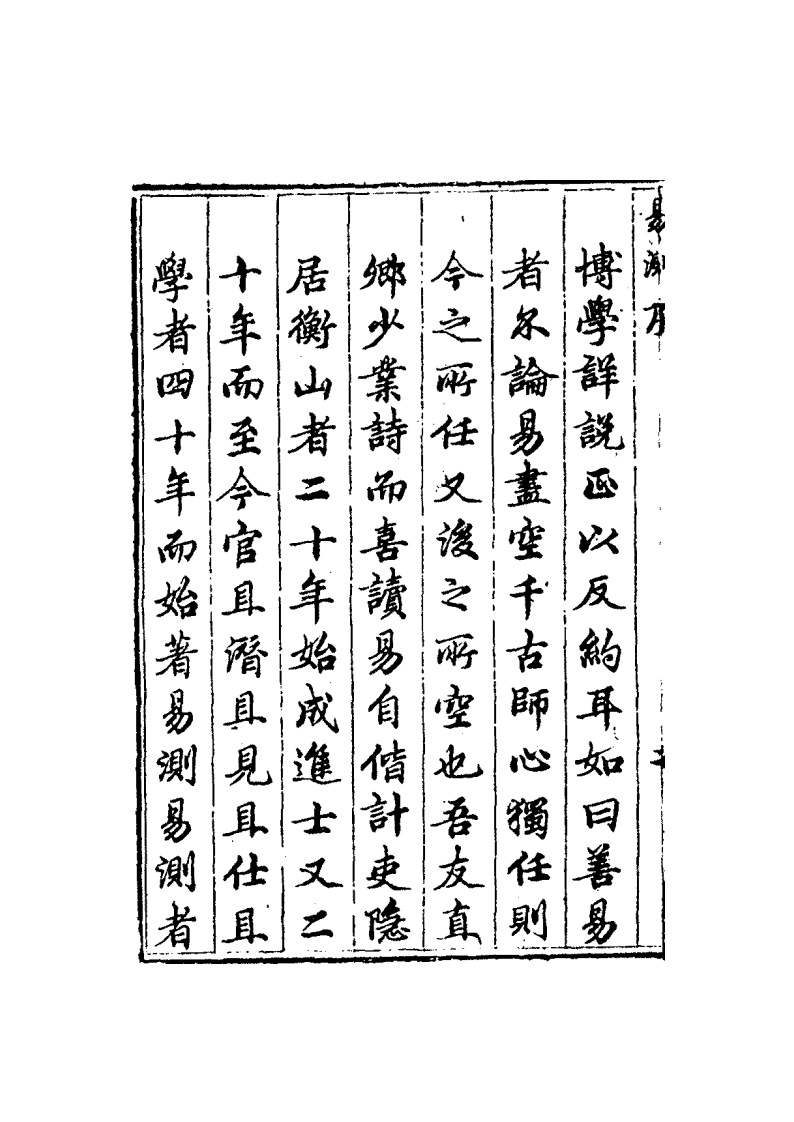 易測序
博學詳説正以反約耳如曰善易
者不論易盡空千古師心獨任則
今之所任又後之所空也吾友直
卿少業詩而喜讀易自偕計吏隐
居衡山者二十年始成進士又二
十年而至今官且潛且見且仕且
學者四十年而始著易測易測者